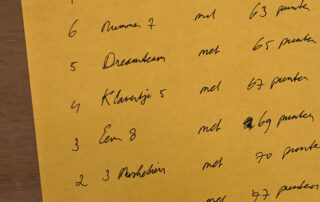 6 nummer 7 met 63 punten
5 Dreamteam met 65 punten
4 Klavertje 5 met 67 punten
3 Een 8 met 69 punten
2 3 Musketiers met 70 punten
met 77 punten